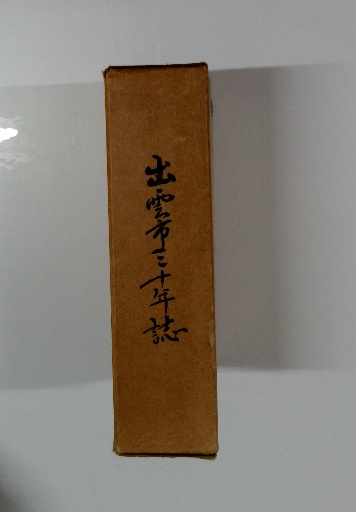 出雲市三十年誌